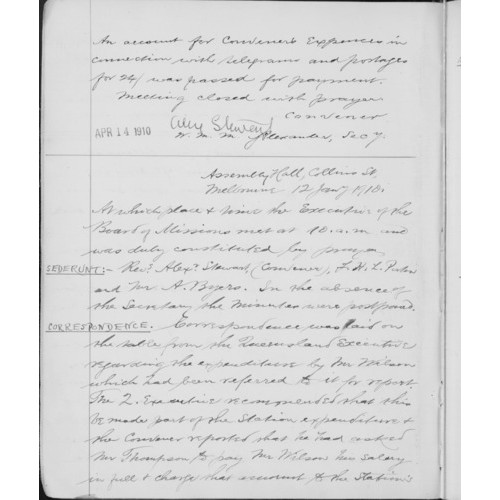 An account for Convener's Expenses in
connection with telegrams and postages
for 24/ was passed for payment.
Meeting closed with prayer
Convener
APR 14 1910 Alex Stewart
W. M. M. Alexander, Secy.
Assembly Hall, Collins St.
Melbourne 12 Jany 1910.
At which place & time the Executive of the
Board of Missions met at 10 a.m. and
was duly constituted by prayer
SEDERUNT:- Revs. Alexr. Stewart, (Convener), F. H. L.
and Mr A. Byers. In the absence of
the Secretary the Minutes were postponed.
CORRESPONDENCE. Correspondence was laid on
the table from the Queensland Executive
regarding the expenditure by Mr Wilson
which had been referred to it for report.
The Q. Executive recommended that this
be made part of the Station expenditure &
the Convener reported that he had asked
Mr Thompson to pay Mr Wilson his salary
in full & charge that amount to the Station's